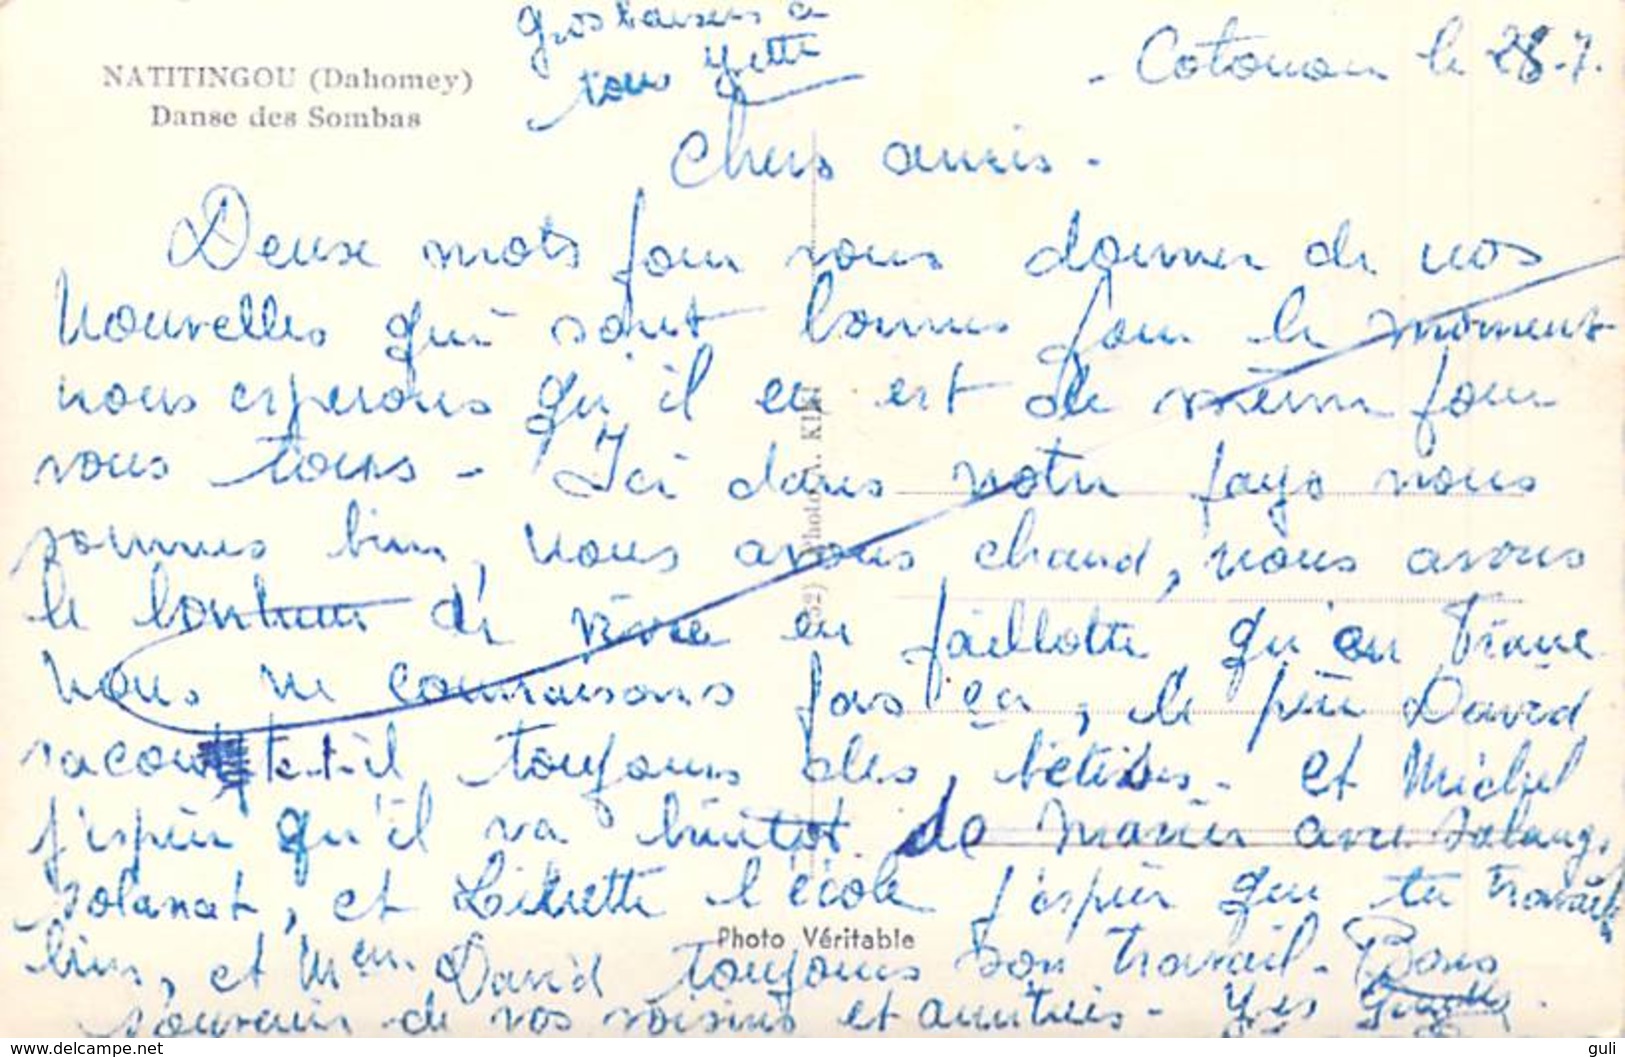 NATITINGOU (Dahomey)
Danse des Sombas
Gros baisers à
tous Yette
- Cotonou le 28.7.
Chers amis -
Deux mots pour vous donner de nos
Nouvelles qui sont bonnes pour le moment
nous esperons qu'il en est de même pour
vous tous - Ici dans notre pays nous
sommes bien, nous avons chaud, nous avons
le bonheur de vivre en paillotte qu'en France
Nous ne connaissons pas ça, le père David
raconte-t-il toujours des bêtises - et Michel
j'espère qu'il va bientot se marier avec
et l'école j'espère que tu travaille
bien, et Mme David toujours son travail - Bons
souvenir de vos voisins et amitiés - Yves
Photo Véritable
guli